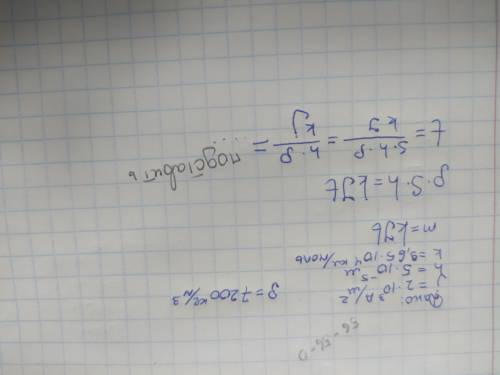 56-56-0
Дано:
j = 2·10³ А/м²
h = 5·10⁻⁵ м
k = 9,65·10⁴ Кл/моль
ρ = 7200 кг/м³
m = kJt
ρ·S·h = kJt
t = S·h·ρ / kJ = h·ρ / kj = ... подставить